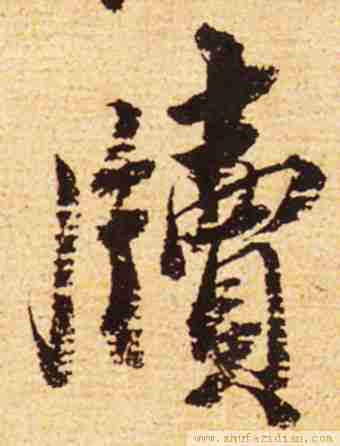 牘
www.shufazidian.com